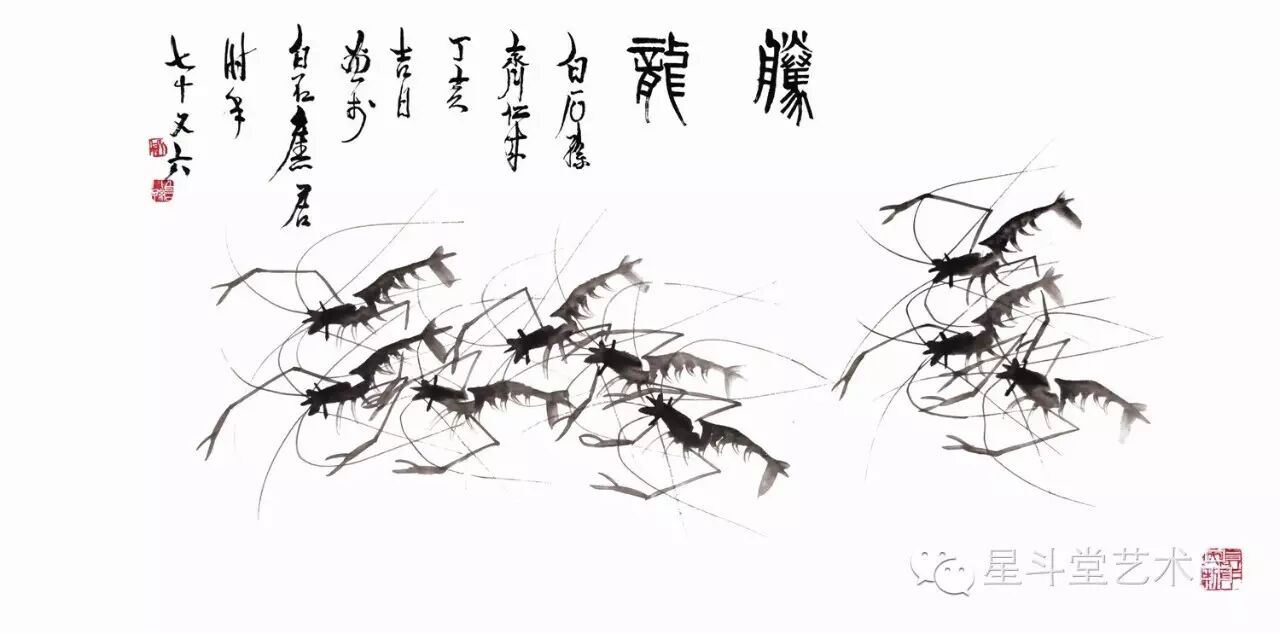 騰龍
白石孫
齊仁来
丁亥
吉日
画於
白石舊居
時年
七十又六
星斗堂艺术